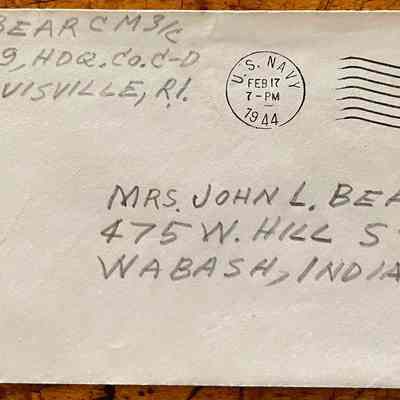 BEAR C M3/C
9, HDQ. CO. C-D
UISVILLE, R.I.
U.S. NAVY
FEB 17
7-PM
1944
MRS. JOHN L. BEA
475 W. HILL S
WABASH, INDIA